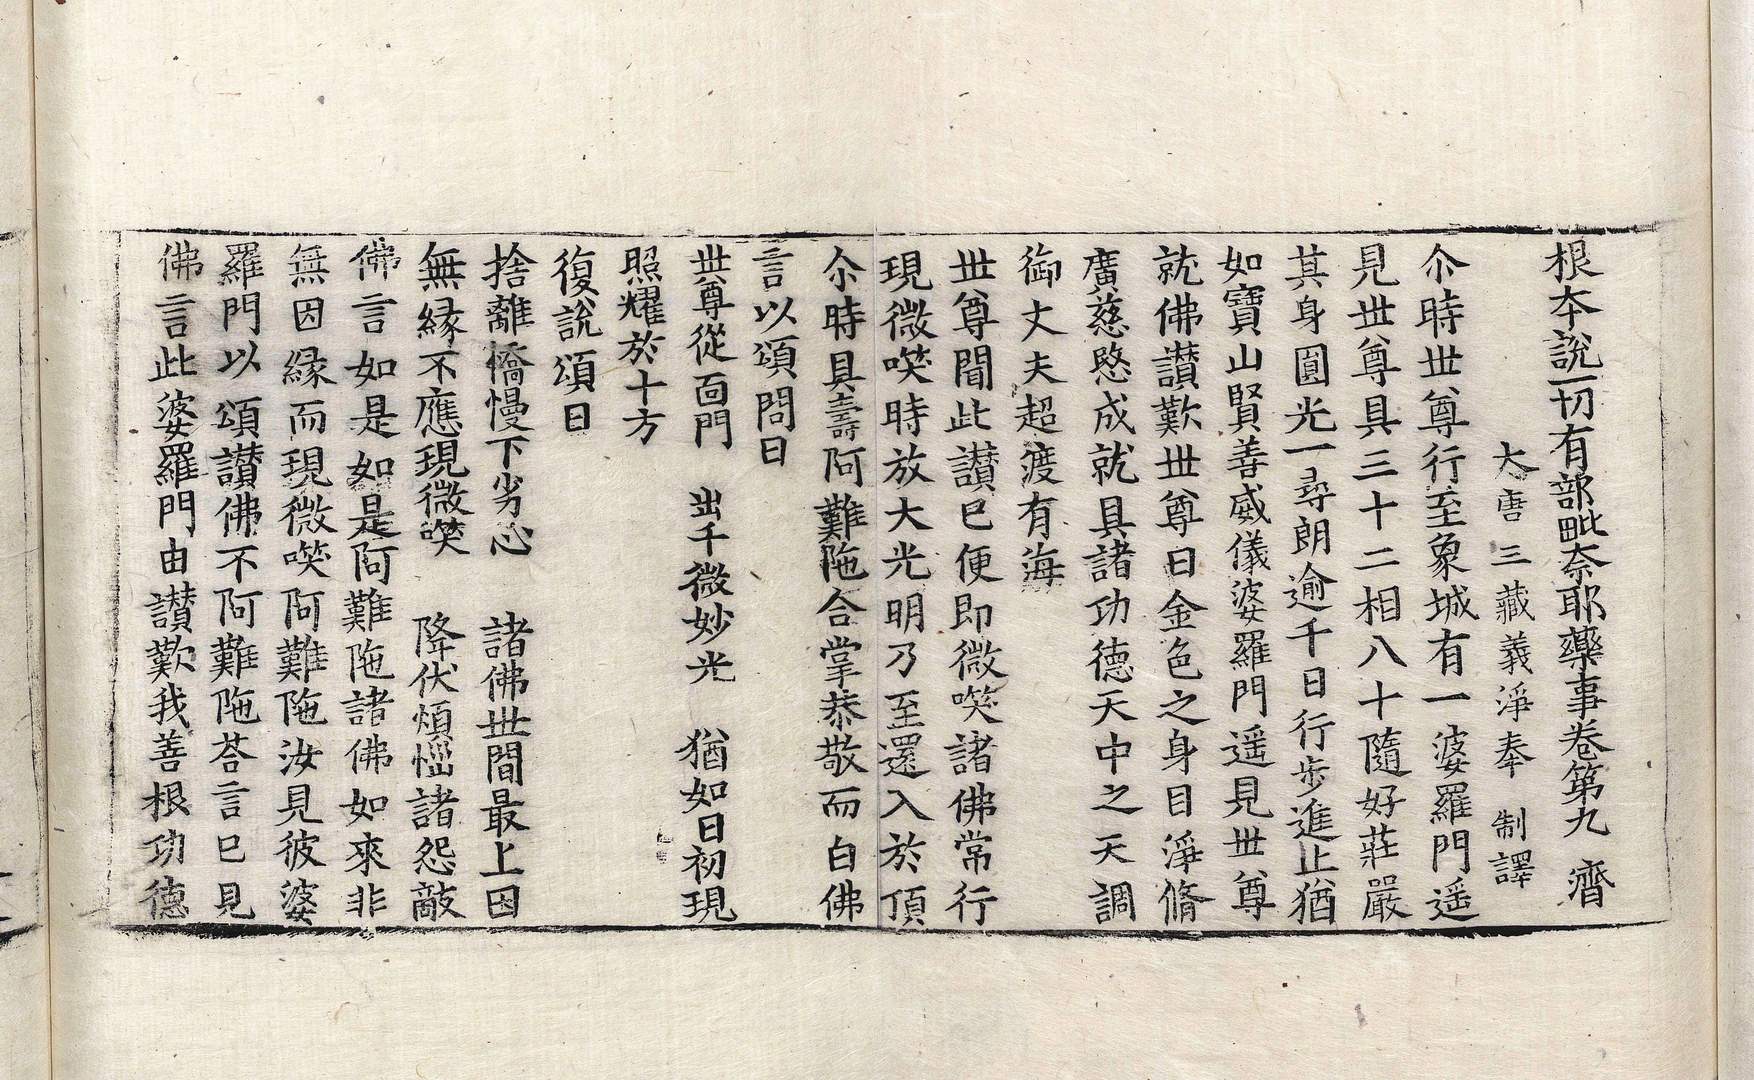 根本說一切有部毗奈耶藥事卷第九 濟
大唐三藏義淨奉 制譯
尒時世尊行至象城有一婆羅門遥
見世尊具三十二相八十隨好莊嚴
其身圓光一尋朗逾千日行步進止猶
如寶山賢善威儀婆羅門遥見世尊
就佛讃歎世尊曰金色之身目淨脩
廣慈愍成就具諸功德天中之天調
御丈夫超渡有海
世尊聞此讃已便即微𥬇諸佛常行
現微𥬇時放大光明乃至還入於頂
尒時具壽阿難陁合掌恭敬而白佛
言以頌問曰
世尊從面門 出千微妙光 猶如日初現
照耀於十方
復說頌曰
捨離憍慢下劣心 諸佛世間最上因
無緣不應現微𥬇 降伏煩惱諸怨敵
佛言如是如是阿難陁諸佛如來非
無因緣而現微𥬇阿難陁汝見彼婆
羅門以頌讃佛不阿難陁荅言已見
佛言此婆羅門由讃歎我善根功德